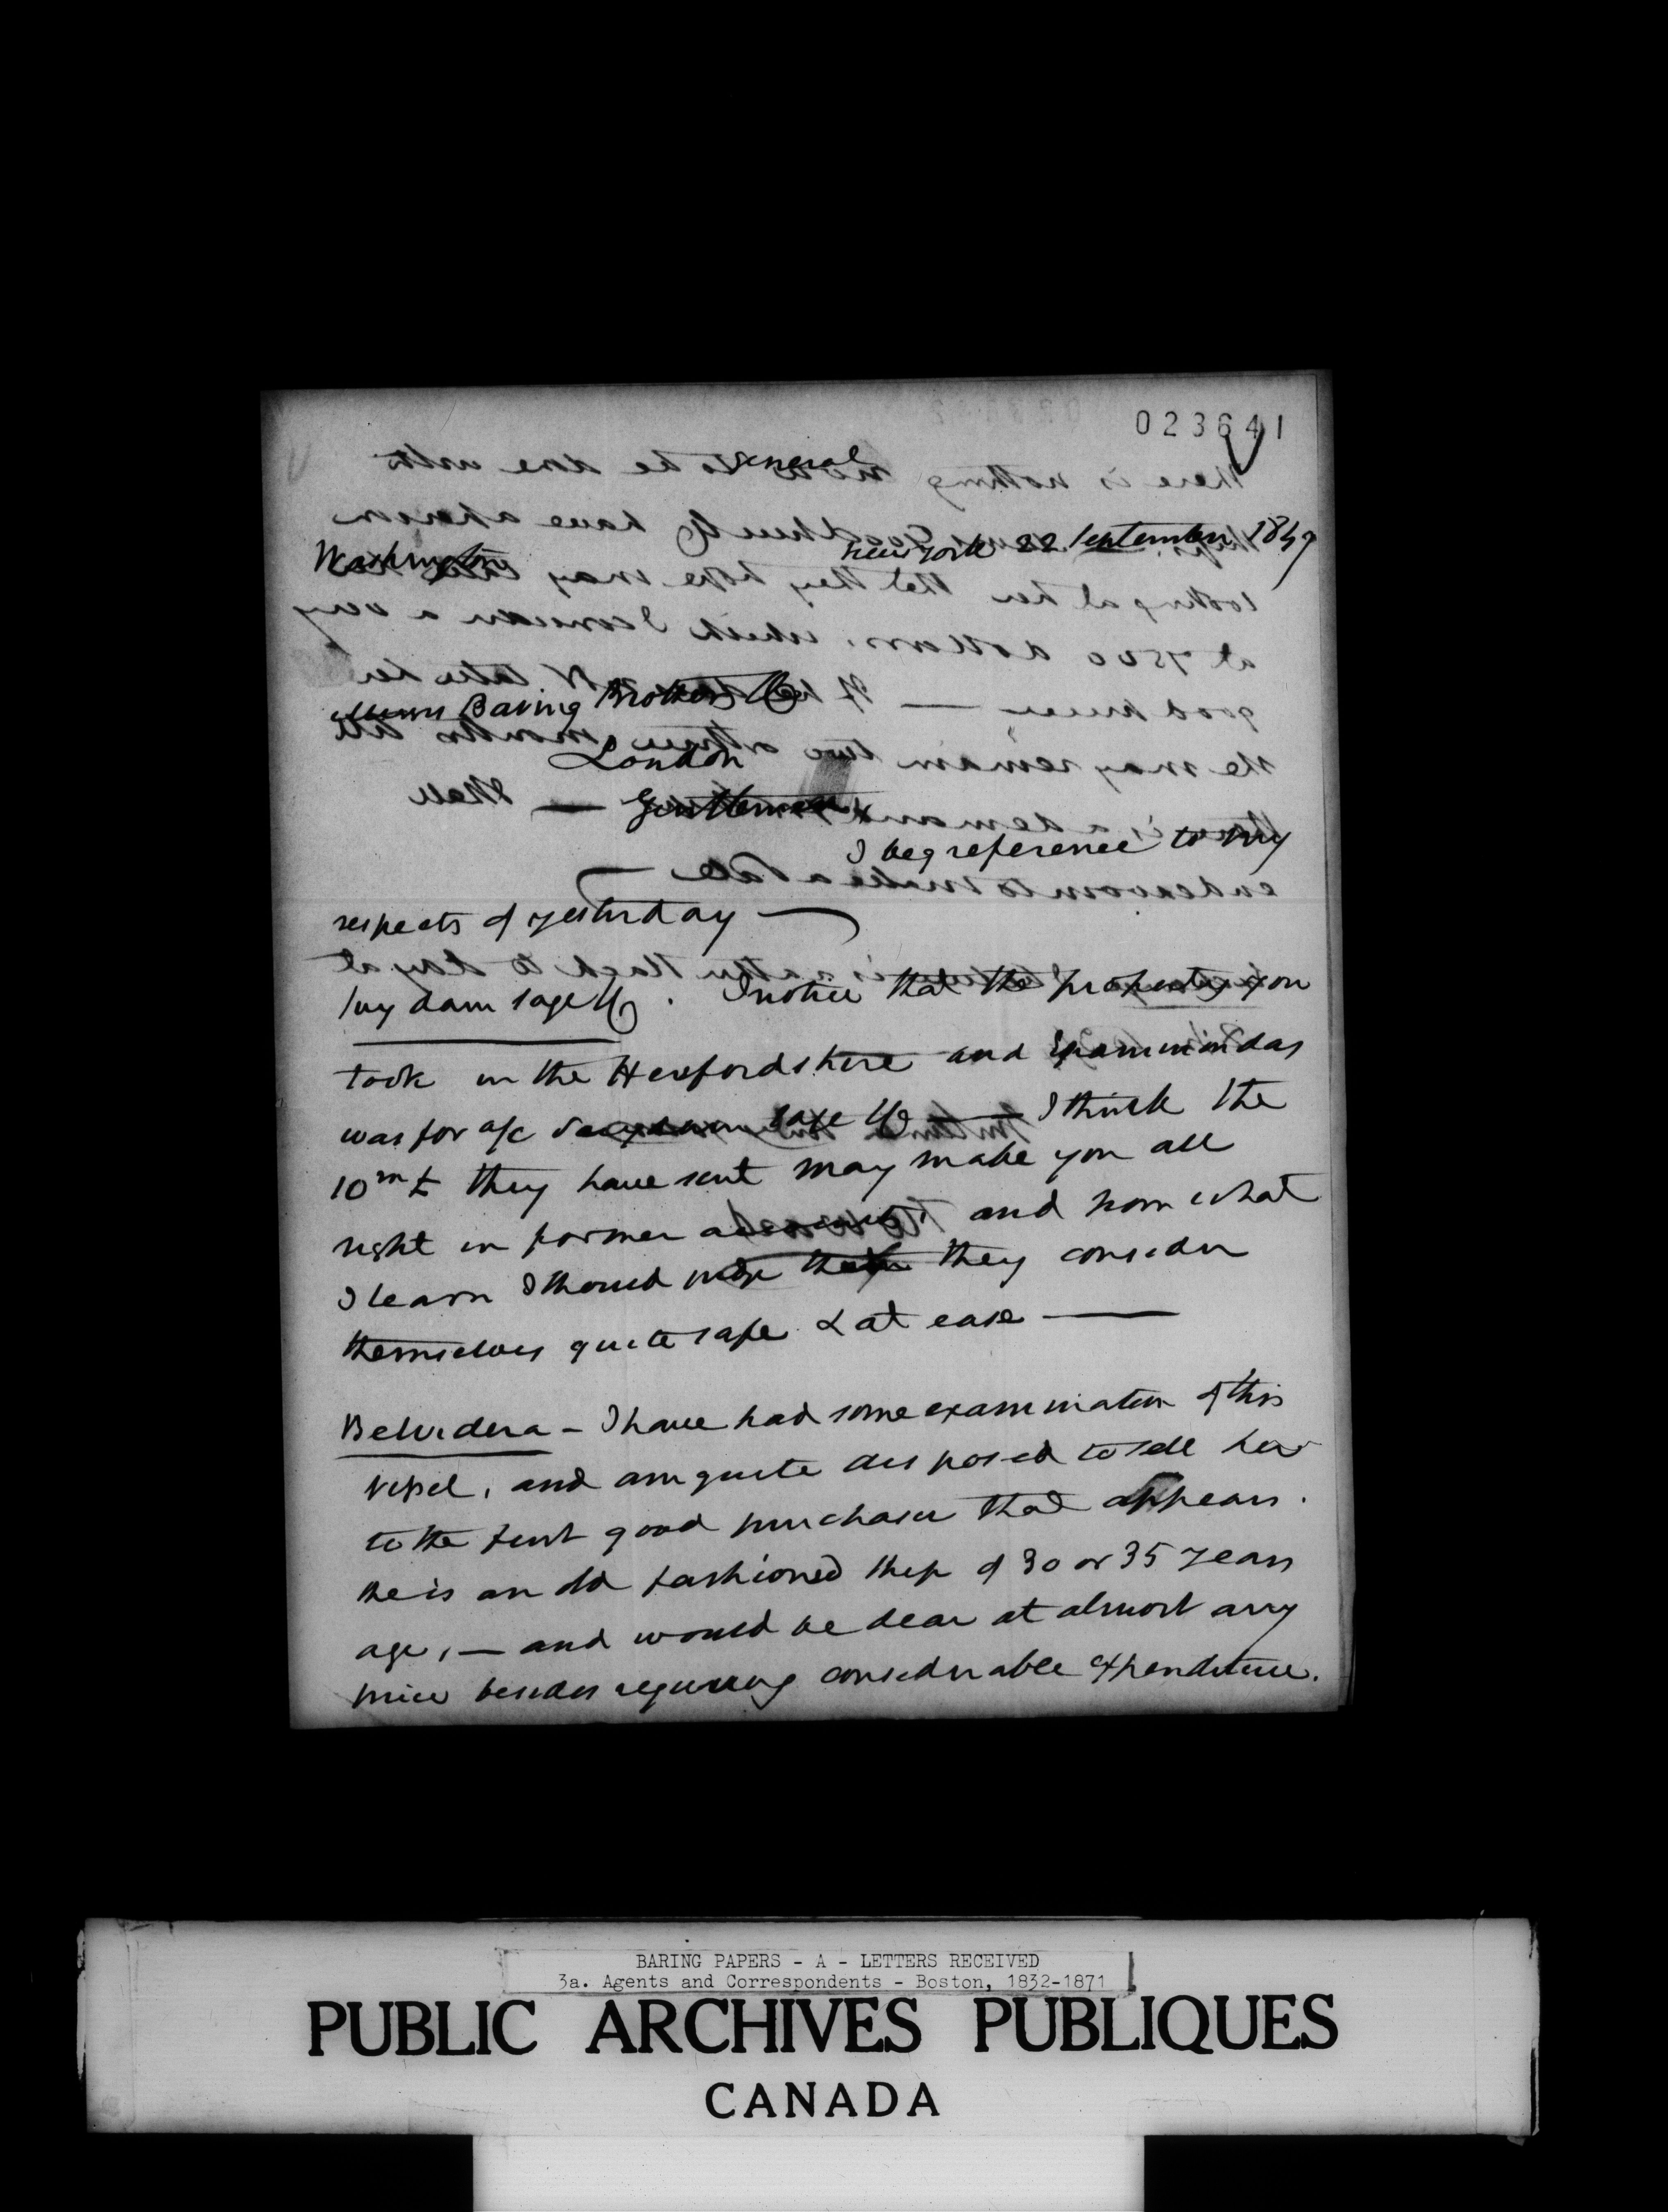 023641
General
Washington
New York 22 September 1847
Messrs Baring Brothers & Co
London
Gentlemen
I beg reference to my
respects of yesterday —
Suydam Sage & Co. I notice that the property you
took in the Herefordshire and Epaminondas
was for a/c Suydam Sage & Co — I think the
10m £ they have sent may make you all
right in former accounts, and from what
I learn I should they consider
themselves quite safe & at ease —
Belvidera – I have had some examination of this
vessel, and am quite disposed to sell her
to the first good purchaser that appears.
She is an old fashioned ship of 30 or 35 years
age, — and would be dear at almost any
price besides requiring considerable expenditure.
BARING PAPERS - A - LETTERS RECEIVED
3a. Agents and Correspondents - Boston, 1832-1871
PUBLIC ARCHIVES PUBLIQUES
CANADA